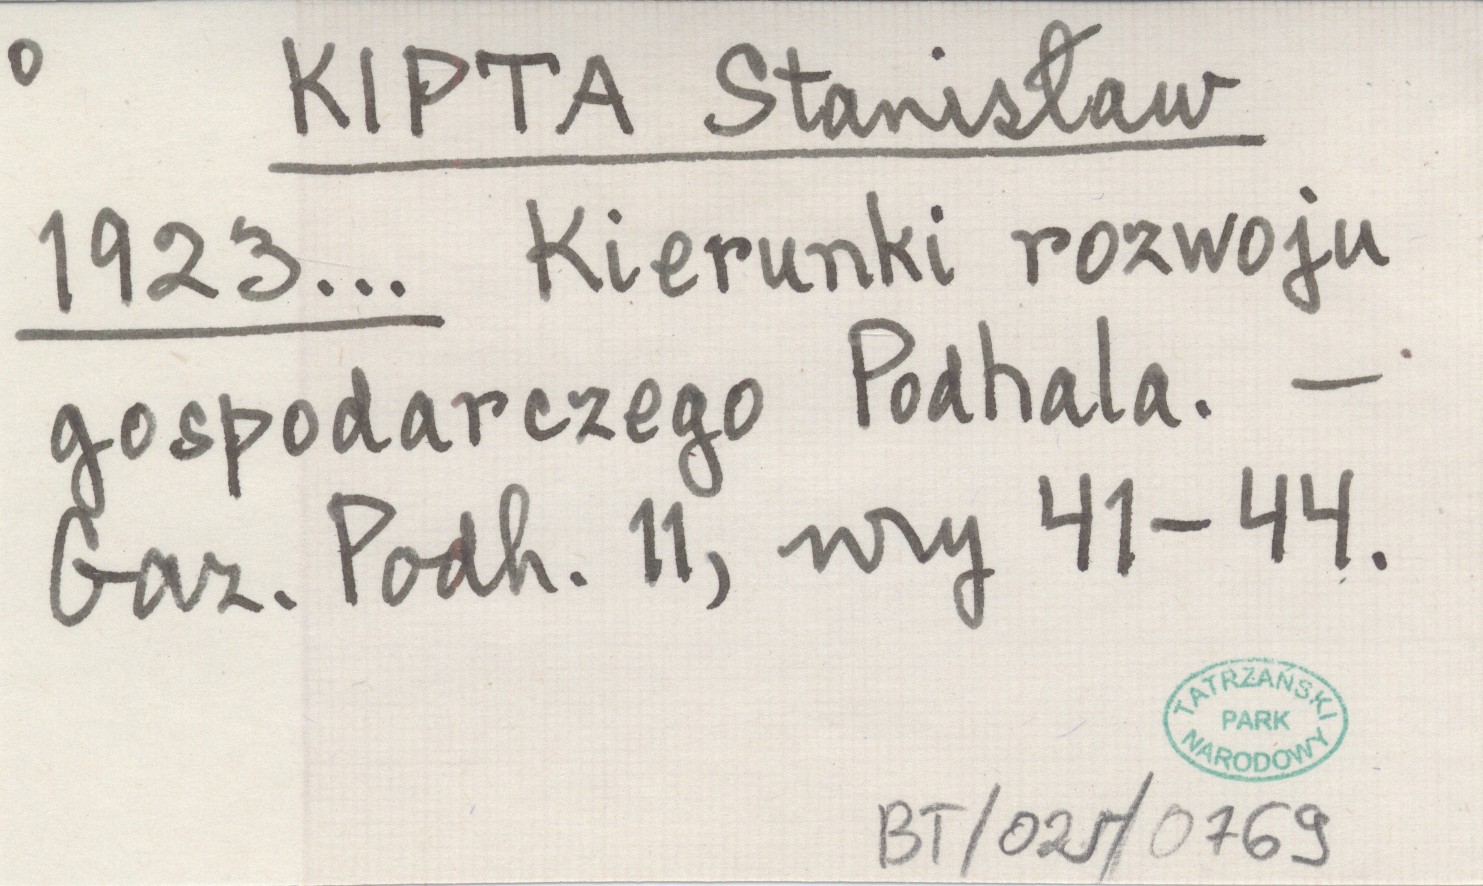 o
KIPTA Stanisław
1923... Kierunki rozwoju
gospodarczego Podhala. —
Gaz. Podh. 11, nry 41-44.
TATRZAŃSKI
PARK
NARODOWY
BT/025/0769